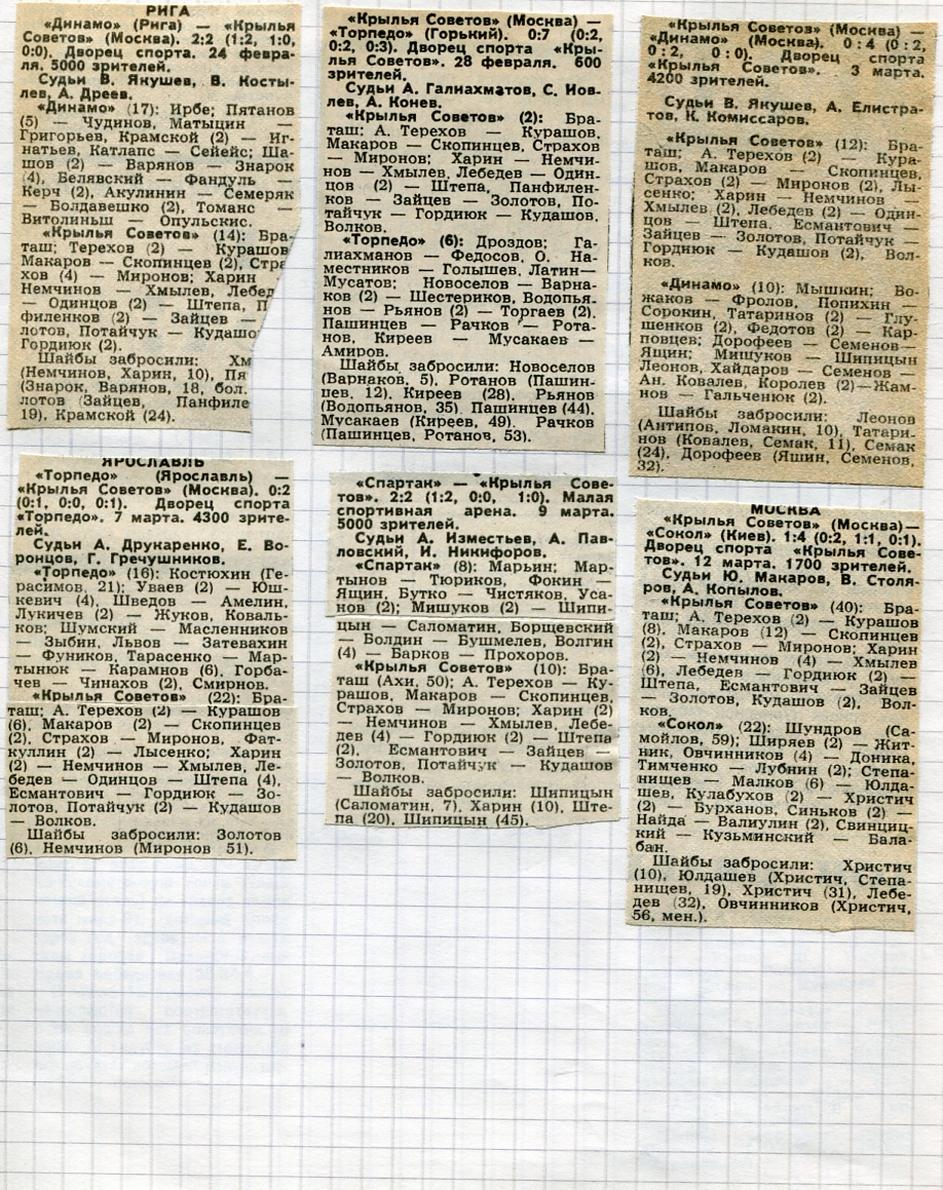 РИГА
«Динамо» (Рига) — «Крылья
Советов» (Москва). 2:2 (1:2, 1:0,
0:0). Дворец спорта. 24 февра-
ля. 5000 зрителей.
Судьи В. Якушев, В. Косты-
лев, А. Дреев.
«Динамо» (17): Ирбе; Пятанов
(5) — Чудинов, Матыцин —
Григорьев, Крамской (2) — Иг-
натьев, Катлапс — Сейейс; Ша-
шов (2) — Варянов — Знарок
(4), Белявский — Фандуль —
Керч (2), Акулинин — Семеряк
— Болдавешко (2), Томанс —
Витолиньш — Опульскис.
«Крылья Советов» (14): Бра-
таш; Терехов (2) — Курашов
Макаров — Скопинцев (2), Стра
хов (4) — Миронов; Харин
Немчинов — Хмылев, Лебед
— Одинцов — Штепа, П
филенков (2) — Зайцев —
лотов, Потайчук — Кудашо
Гордиюк (2).
Шайбы забросили: Хм
(Немчинов, Харин, 10), Пя
(Знарок, Варянов, 18, бол.
лотов (Зайцев, Панфиле
19), Крамской (24).
«Крылья Советов» (Москва) —
«Торпедо» (Горький). 0:7 (0:2,
0:2, 0:3). Дворец спорта «Кры-
лья Советов». 28 февраля. 600
зрителей.
Судьи А. Галиахматов, С. Иов-
лев, А. Конев.
«Крылья Советов» (2): Бра-
таш; А. Терехов — Курашов,
Макаров — Скопинцев, Страхов
— Миронов; Харин — Немчи-
нов — Хмылев, Лебедев — Один-
цов (2) — Штепа, Панфилен-
ков — Зайцев — Золотов, По-
тайчук — Гордиюк — Кудашов,
Волков.
«Торпедо» (6): Дроздов; Га-
лиахманов — Федосов, О. На-
местников — Голышев, Латин—
Мусатов; Новоселов — Варна-
ков (2) — Шестериков, Водопья-
нов — Рьянов (2) — Торгаев (2),
Пашинцев — Рачков — Рота-
нов, Киреев — Мусакаев —
Амиров.
Шайбы забросили: Новоселов
(Варнаков, 5), Ротанов (Пашин-
цев, 12), Киреев (28), Рьянов
(Водопьянов, 35), Пашинцев (44),
Мусакаев (Киреев, 49), Рачков
(Пашинцев, Ротанов, 53).
«Крылья Советов» (Москва) —
«Динамо» (Москва). 0:4 (0:2,
0:2, 0:0). Дворец спорта
«Крылья Советов». 3 марта.
4200 зрителей.
Судьи В. Якушев, А. Елистра-
тов, К. Комиссаров.
«Крылья Советов» (12): Бра-
таш; А. Терехов (2) — Кура-
шов, Макаров — Скопинцев,
Страхов (2) — Миронов (2), Лы-
сенко; Харин — Немчинов —
Хмылев (2), Лебедев (2) — Один-
цов — Штепа, Есмантович —
Зайцев — Золотов, Потайчук —
Гордиюк — Кудашов (2), Вол-
ков.
«Динамо» (10): Мышкин; Во-
жаков — Фролов, Попихин —
Сорокин, Татаринов (2) — Глу-
шенков (2), Федотов (2) — Кар-
повцев; Дорофеев — Семенов—
Яшин; Мишуков — Шипицын
Леонов, Хайдаров — Семенов —
Ан. Ковалев, Королев (2)—Жам-
нов — Гальченюк (2).
Шайбы забросили: Леонов
(Антипов, Ломакин, 10), Татари-
нов (Ковалев, Семак, 11), Семак
(24), Дорофеев (Яшин, Семенов,
32).
ЯРОСЛАВЛЬ
«Торпедо» (Ярославль) —
«Крылья Советов» (Москва). 0:2
(0:1, 0:0, 0:1). Дворец спорта
«Торпедо». 7 марта. 4300 зрите-
лей.
Судьи А. Друкаренко, Е. Во-
ронцов, Г. Гречушников.
«Торпедо» (16): Костюхин (Ге-
расимов, 21); Уваев (2) — Юш-
кевич (4), Шведов — Амелин,
Лукичев (2) — Жуков, Коваль-
ков; Шумский — Масленников
— Зыбин, Львов — Затевахин
— Фуников, Тарасенко — Мар-
тынюк — Карамнов (6), Горба-
чев — Чинахов (2), Смирнов.
«Крылья Советов» (22): Бра-
таш; А. Терехов (2) — Курашов
(6), Макаров (2) — Скопинцев
(2), Страхов — Миронов, Фат-
куллин (2) — Лысенко; Харин
(2) — Немчинов — Хмылев, Ле-
бедев — Одинцов — Штепа (4),
Есмантович — Гордиюк — Зо-
лотов, Потайчук (2) — Кудашов
— Волков.
Шайбы забросили: Золотов
(6), Немчинов (Миронов 51).
«Спартак» — «Крылья Сове-
тов». 2:2 (1:2, 0:0, 1:0). Малая
спортивная арена. 9 марта.
5000 зрителей.
Судьи А. Изместьев, А. Пав-
ловский, И. Никифоров.
«Спартак» (8): Марьин; Мар-
тынов — Тюриков, Фокин —
Ящин, Бутко — Чистяков, Уса-
нов (2); Мишуков (2) — Шипи-
цын — Саломатин, Борщевский
— Болдин — Бушмелев, Волгин
(4) — Барков — Прохоров.
«Крылья Советов» (10): Бра-
таш (Ахи, 50); А. Терехов — Ку-
рашов, Макаров — Скопинцев,
Страхов — Миронов; Харин (2)
— Немчинов — Хмылев, Лебе-
дев (4) — Гордиюк (2) — Штепа
(2), Есмантович — Зайцев —
Золотов, Потайчук — Кудашов
— Волков.
Шайбы забросили: Шипицын
(Саломатин, 7), Харин (10), Ште-
па (20), Шипицын (45).
МОСКВА
«Крылья Советов» (Москва)—
«Сокол» (Киев). 1:4 (0:2, 1:1, 0:1).
Дворец спорта «Крылья Сове-
тов». 12 марта. 1700 зрителей.
Судьи Ю. Макаров, В. Столя-
ров, А. Копылов.
«Крылья Советов» (40): Бра-
таш; А. Терехов (2) — Курашов
(8), Макаров (12) — Скопинцев
(2), Страхов — Миронов; Харин
(2) — Немчинов (4) — Хмылев
(6), Лебедев — Гордиюк (2) —
Штепа, Есмантович — Зайцев
— Золотов, Кудашов (2), Вол-
ков.
«Сокол» (22): Шундров (Са-
мойлов, 59); Ширяев (2) — Жит-
ник, Овчинников (4) — Доника,
Тимченко — Лубнин (2); Степа-
нищев — Малков (6) — Юлда-
шев, Кулабухов (2) — Христич
(2) — Бурханов, Синьков (2) —
Найда — Валиулин (2), Свинциц-
кий — Кузьминский — Бала-
бан.
Шайбы забросили: Христич
(10), Юлдашев (Христич, Степа-
нищев, 19), Христич (31), Лебе-
дев (32), Овчинников (Христич,
56, мен.).